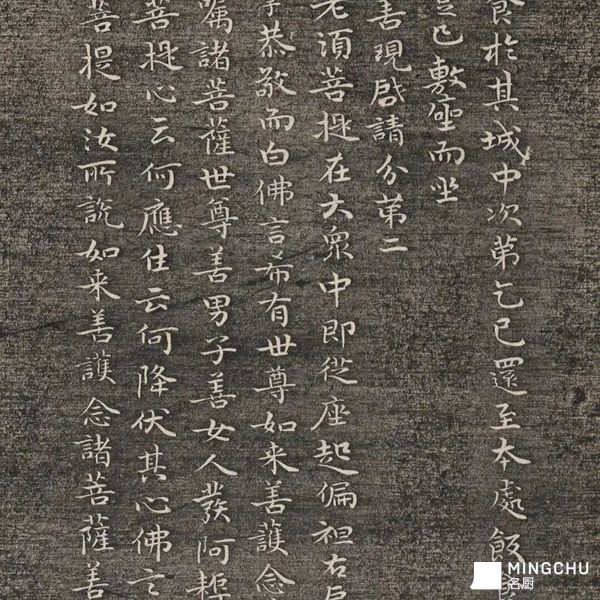 食於其城中次第乞已還至本處飯
已敷座而坐
善現啓請分第二
老須菩提在大衆中即從座起偏袒右肩
恭敬而白佛言希有世尊如来善護念
囑諸菩薩世尊善男子善女人發阿耨
菩提心云何應住云何降伏其心佛言
菩提如汝所說如来善護念諸菩薩善
MINGCHU
名厨